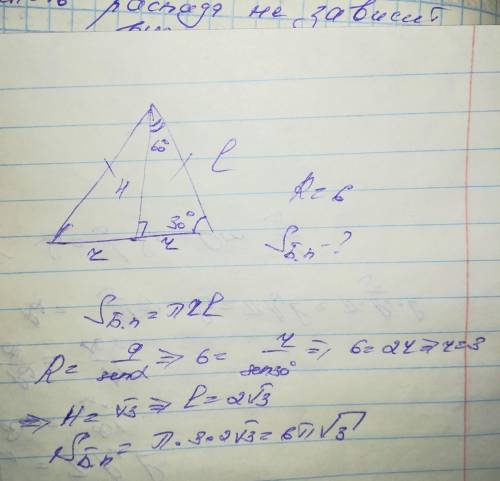 распада не зависит
60°
H
l
30°
r
r
R = 6
Sб.п - ?
Sб.п = πrl
R = a/sinα => 6 = r/sin30° => 6 = 2r => r = 3
=> H = √3 => l = 2√3
Sб.п = π · 3 · 2√3 = 6π√3